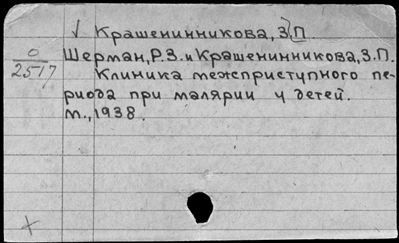 √ Крашенинникова, З.П.
О
2517
Шерман, Р.З. и Крашенинникова, З.П.
Клиника межприступного пе-
риода при малярии у детей.
М., 1938.
+